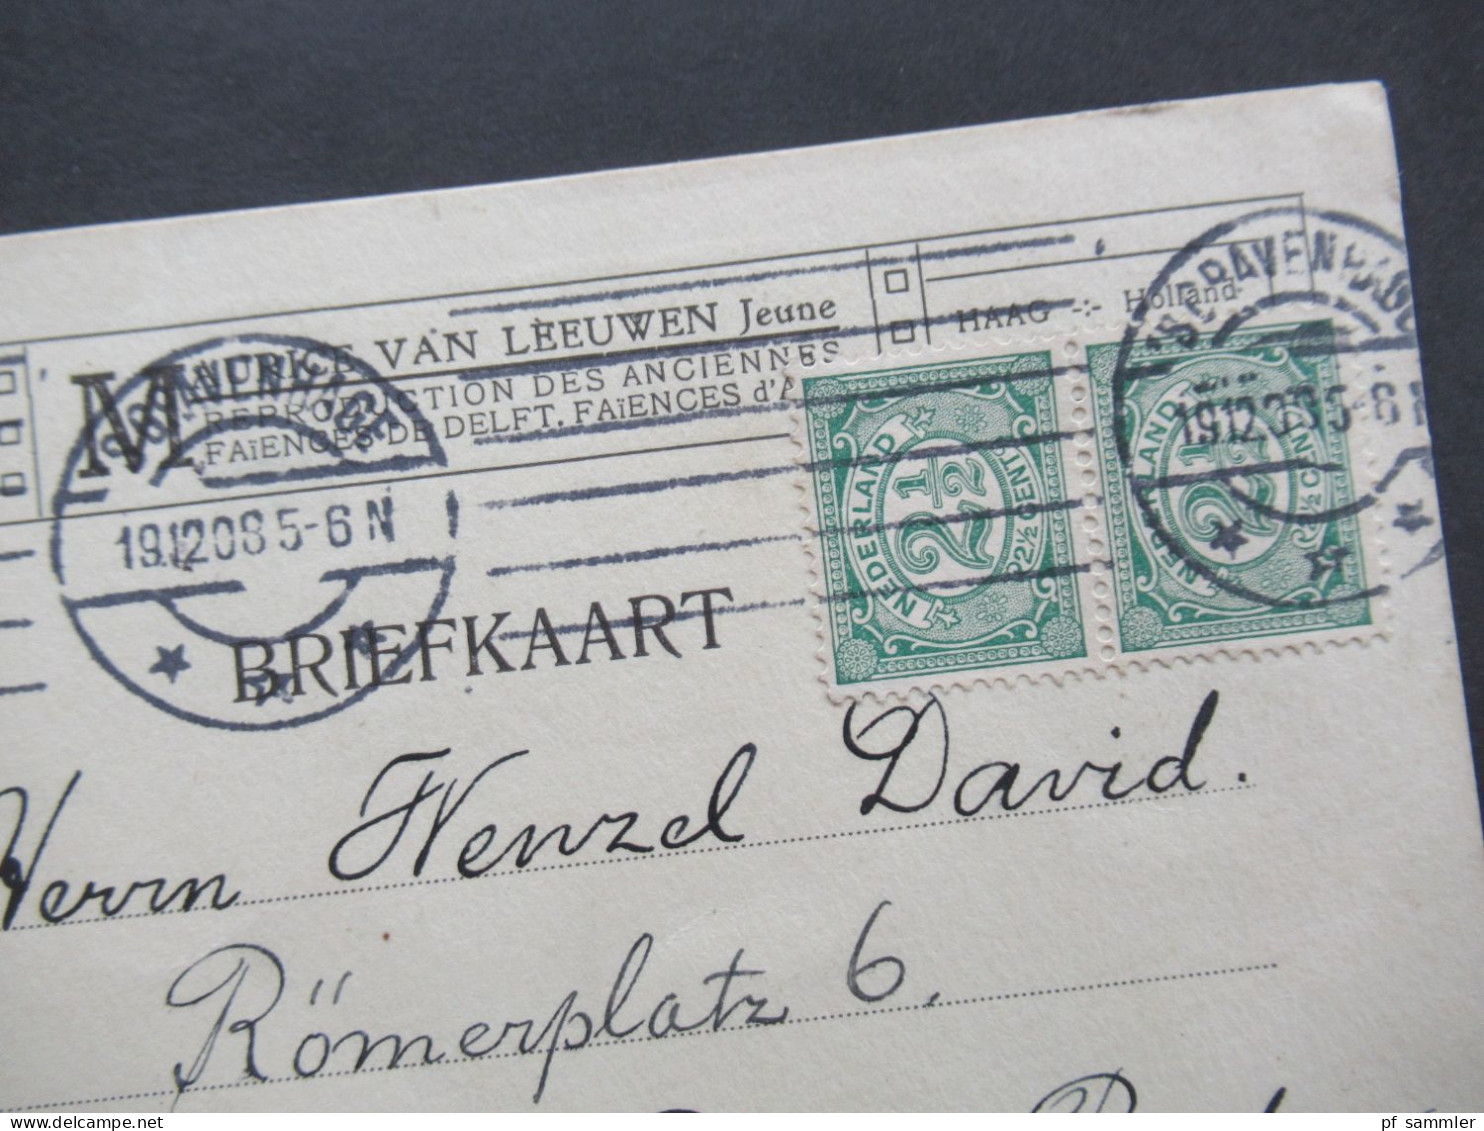 MAURICE VAN LEEUWEN Jeune
REPRODUCTION DES ANCIENNES
FAïENCES DE DELFT. FAïENCES d'A
HAAG -:- Holland
'S GRAVENHAGE
19.12.08 5-6 N
'S GRAVENHAGE
19.12.08 5-6 N
NEDERLAND
2½
2½ CENT
NEDERLAND
2½
2½ CENT
BRIEFKAART
Herrn Wenzel David.
Römerplatz 6.
pf sammler